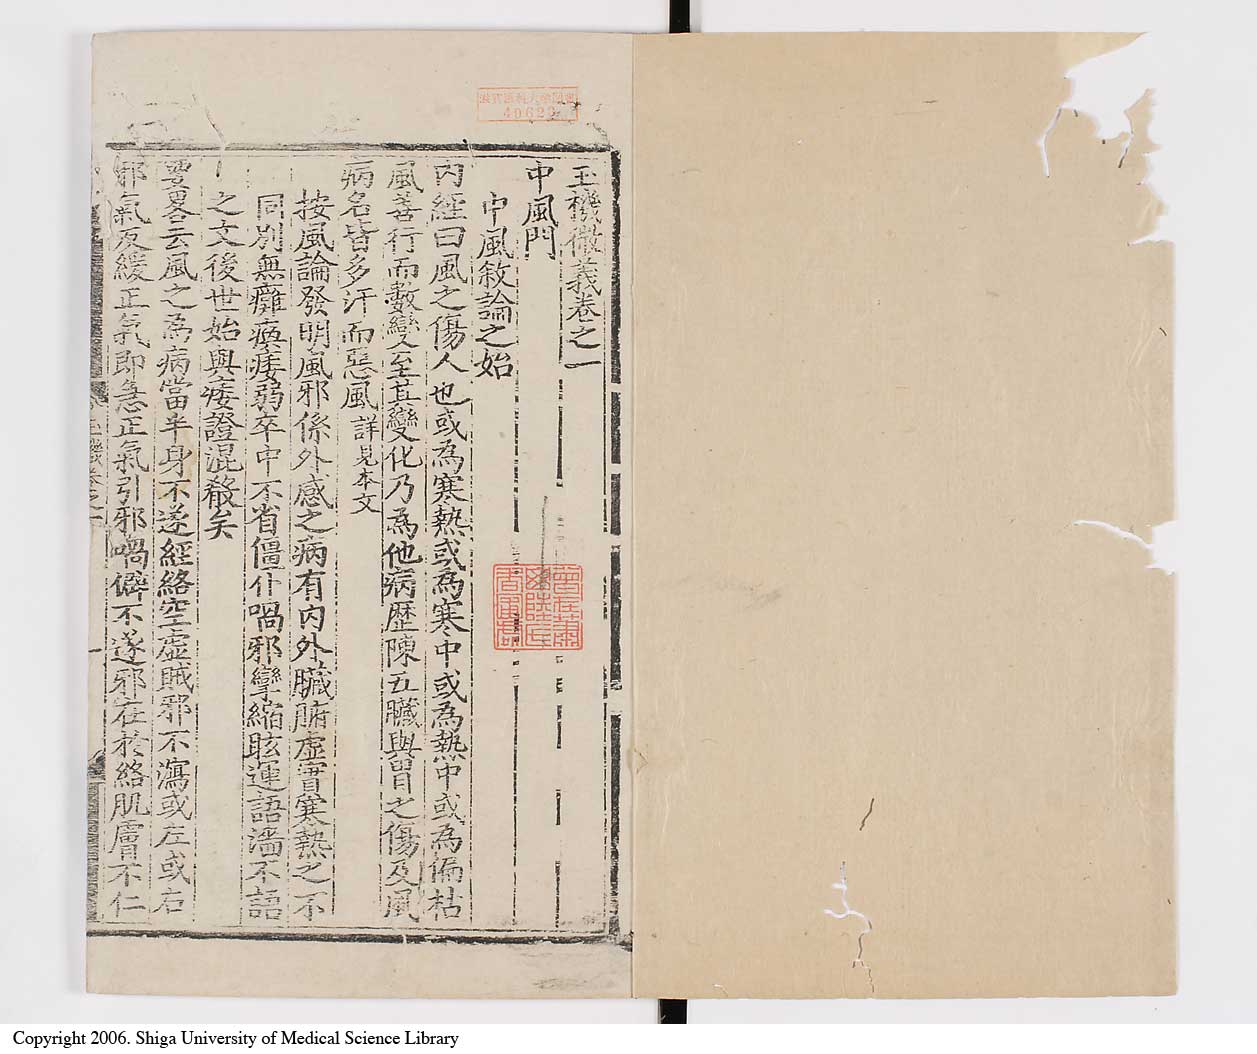 玉機微義卷之一
中風門
中風敘論之始
內經曰風之傷人也或為寒熱或為寒中或為熱中或為偏枯
風善行而數變至其變化乃為他病歷陳五臟與胃之傷及風
病名皆多汗而惡風詳見本文
按風論發明風邪係外感之病有內外臟腑虛實寒熱之不
同別無癱瘓痿弱卒中不省僵仆喎邪攣縮眩運語濇不語
之文後世始與痿證混殽矣
要畧云風之為病當半身不遂經絡空虛賊邪不瀉或左或右
邪氣反緩正氣即急正氣引邪喎僻不遂邪在於絡肌膚不仁
40629
Copyright 2006. Shiga University of Medical Science Library